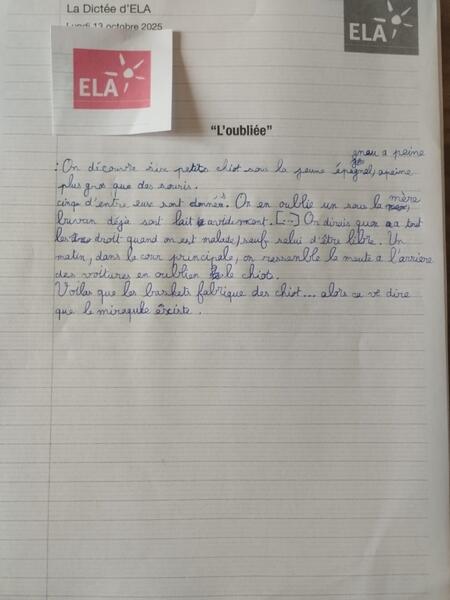 La Dictée d'ELA
Lundi 13 octobre 2025
ELA
ELA
"L'oubliée"
: On découvre sixe petits chiot sous la jeune épagnel, apeine
plus gros que des souris.
cinqs d'entre eux sont donnés. On en oublie un sous la mère
buvan déjà sont lait avidement. [...] On dirais quon a tout
les droit quand on est malade, seuf selui d'être libre. Un
matin, dans la cour principale, on ressemble la meute a l'arrière
des voitures en oublien le chiot.
Voilas que les baskets fabrique des chiot... alors ce ve dire
que le miraqule éxiste.